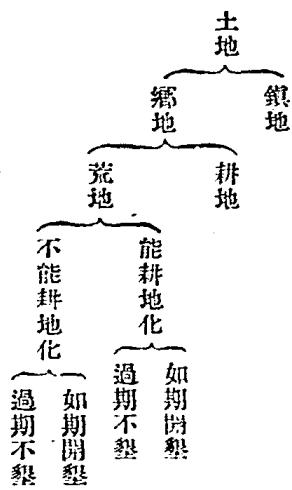 土地
鎮地
鄉地
耕地
荒地
能耕地化
不能耕地化
如期開墾
過期不墾
如期開墾
過期不墾